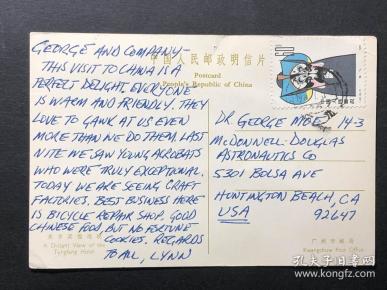 中国人民邮政明信片
Postcard
People's Republic of China
GEORGE AND COMPANY —
THIS VISIT TO CHINA IS A
PERFECT DELIGHT. EVERYONE
IS WARM AND FRIENDLY. THEY
LOVE TO GAWK AT US EVEN
MORE THAN WE DO THEM. LAST
NITE WE SAW YOUNG ACROBATS
WHO WERE TRULY EXCEPTIONAL.
TODAY WE ARE SEEING CRAFT
FACTORIES. BEST BUSINESS HERE
IS BICYCLE REPAIR SHOP. GOOD
CHINESE FOOD, BUT NO FORTUNE
COOKIES. REGARDS
TO ALL, LYNN
A Distant View of the
Tungfang Hotel
DR. GEORGE MOE 14-3
MCDONNELL-DOUGLAS
ASTRONAUTICS CO
5301 BOLSA AVE
HUNTINGTON BEACH, CA
USA 92647
广州市邮局
Kwangchow Post Office
孔夫子旧书网